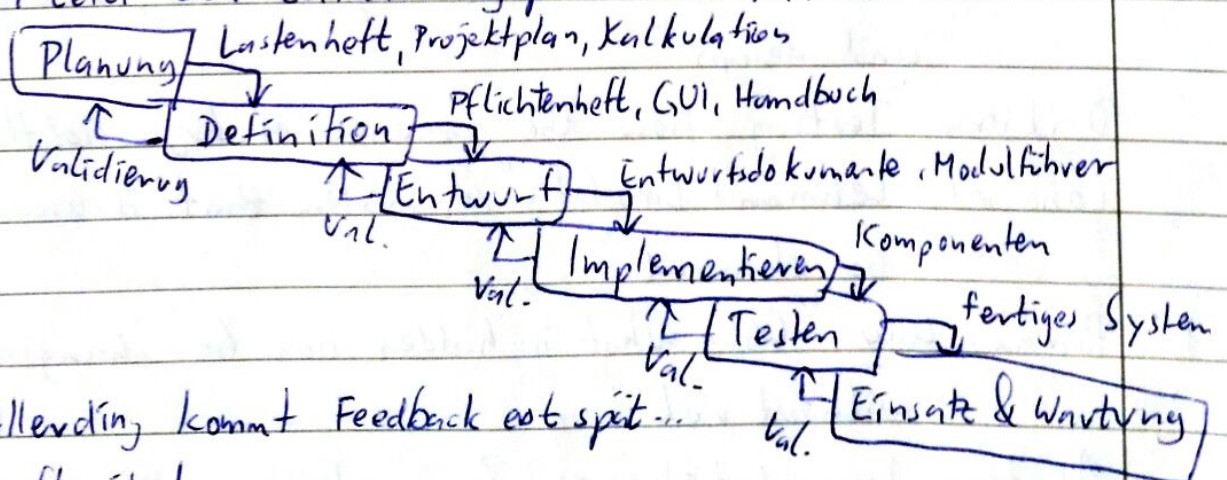 Planung Lastenheft, Projektplan, Kalkulation
Definition Pflichtenheft, GUI, Handbuch
Validierug
Entwurf Entwurfsdokumante, Modulführer
Val.
Implementieren Komponenten
Val.
Testen fertiges System
Val.
Einsatz & Wartung
Val.
llerding kommt Feedback est spät...